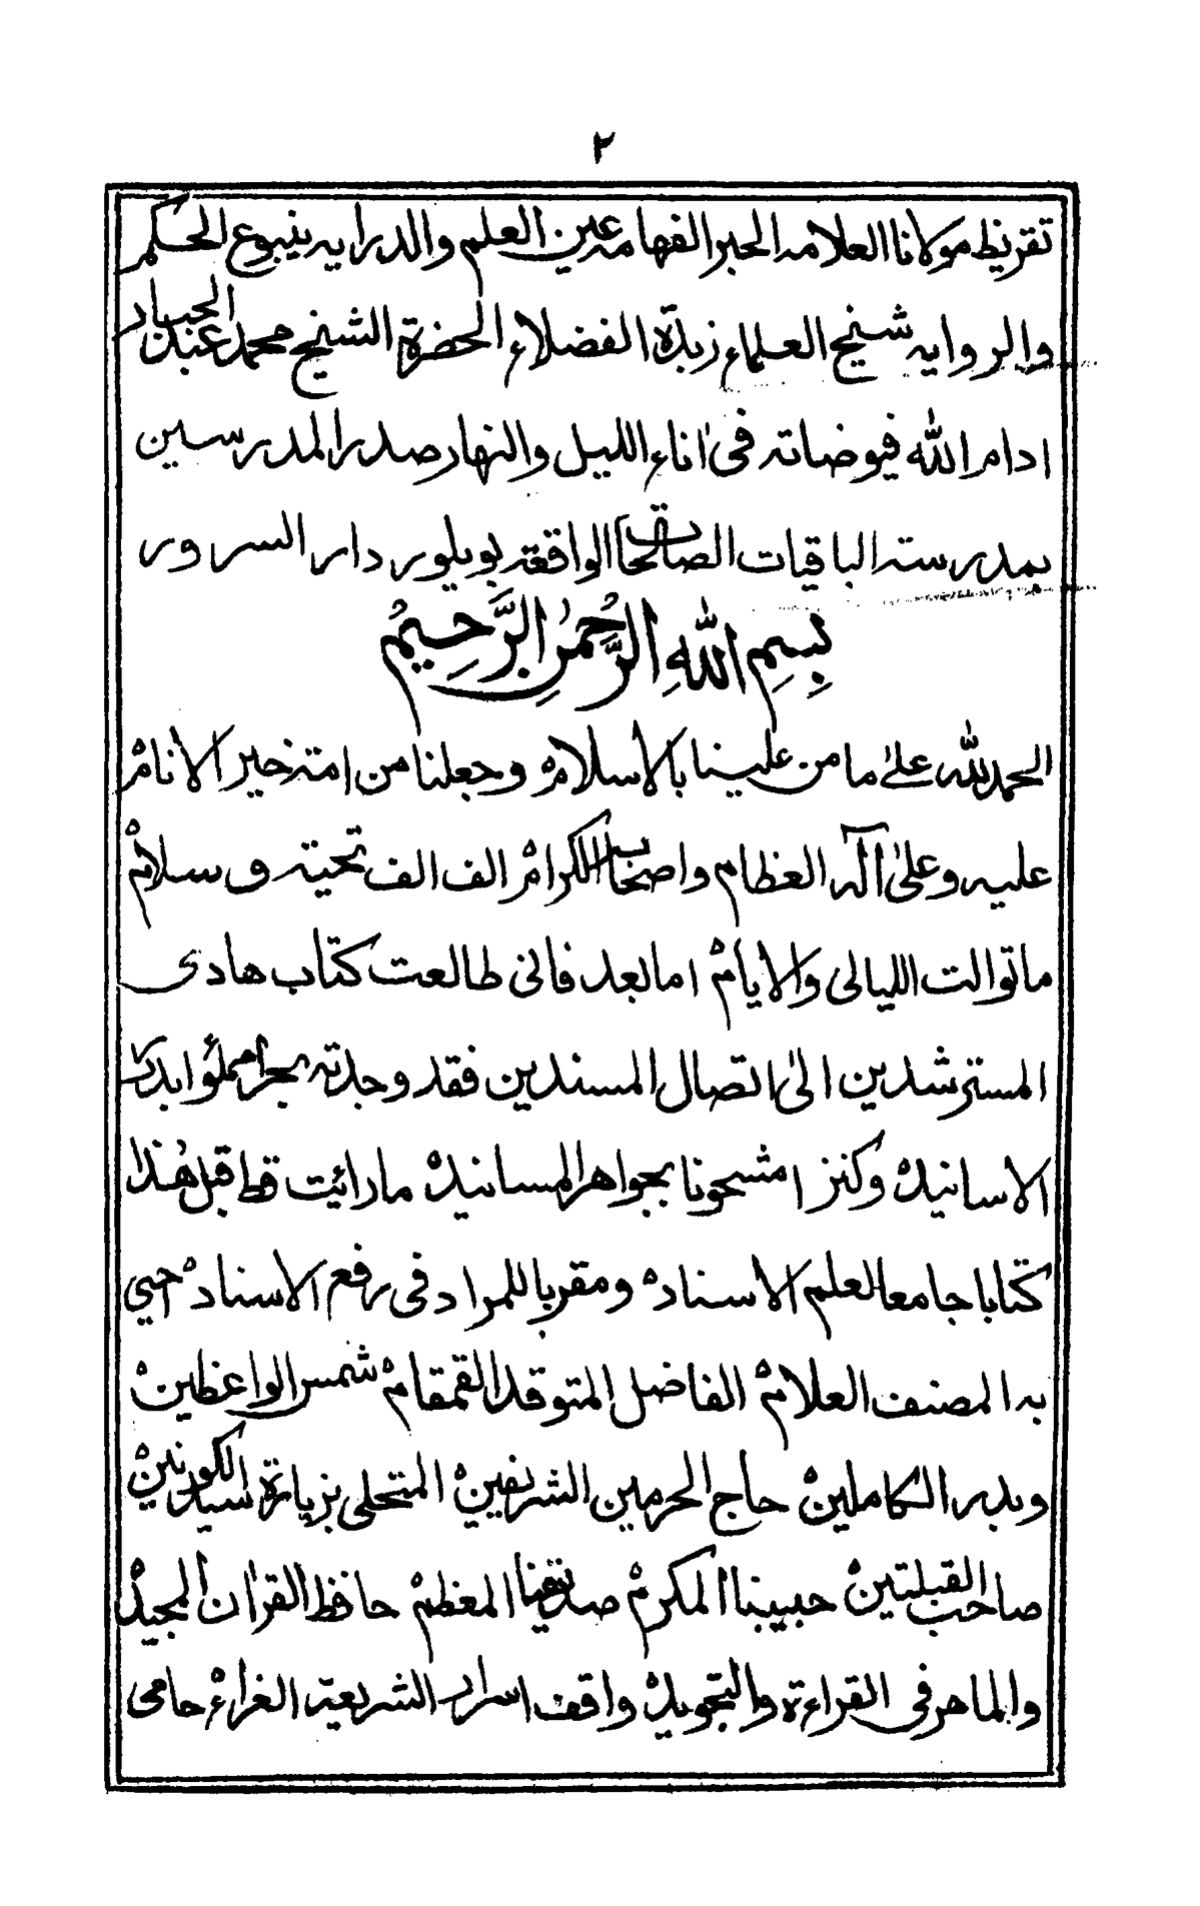 ٢
تقريظ مولانا العلامه الحبر الفهامه عين العلم والدرايه ينبوع الحكم
والروايه شيخ العلماء زبدة الفضلاء الحضرة الشيخ محمد عبد الجبار
ادام الله فيوضاته فى اٰناء الليل والنهار صدر المدرسين
بمدرسته الباقيات الصالحات الواقعة بويلور دار السرور
بِسمِ اللهِ الرَّحْمٰنِ الرَّحِيمْ
الحمد لله علىٰ ما من علينا بالاسلامْ وجعلنا من امته خير الانامْ
عليه وعلىٰ آله العظام واصحابه الكرامْ الف الف تحية و سلامْ
ما توالت الليالى والايامْ اما بعد فانى طالعت كتاب هادى
المسترشدين الىٰ اتصال المسندين فقد وجدته بحرا مملؤا بدرر
الاسانيدْ وكنزا مشحونا بجواهر المسانيدْ ما رائيت قط قبل هٰذا
كتابا جامعا لعلم الاسنادْ ومقربا للمراد فى رفع الاسنادْ حيي
به المصنف العلامْ الفاضل المتوقد القمقامْ شمس الواعظينْ
وبدر الكاملينْ حاج الحرمين الشريفينْ المتحلى بزيارة سيد الكونينْ
صاحب القبلتينْ حبيبنا المكرمْ صديقنا المعظمْ حافظ القراٰن المجيدْ
والماهر فى القراءة والتجويدْ واقف اسرار الشريعة الغراءْ حامى